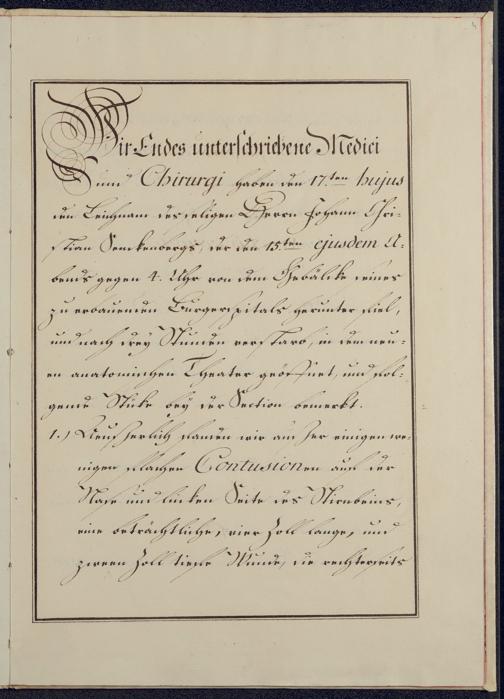 Wir Endes unterschriebene Medici
und Chirurgi haben den 17.ten hujus
den Leichnam des seligen Herrn Johann Chri-
stian Senckenbergs, der den 15.ten ejusdem A-
bends gegen 4. Uhr von dem Gebälcke seines
zu erbauenden Burgerspitals herunter fiel,
und nach drey Stunden verstarb, in dem neu-
en anatomischen Theater geöffnet, und fol-
gende Stüke bey der Section bemerkt.
1.) Aeusserlich fanden wir ausser einigen we-
nigen flachen Contusionen auf der
Nase und linken Seite des Stirnbeins,
eine beträchtliche, vier Zoll lange, und
zween Zoll tiefe Wunde, die rechterseits